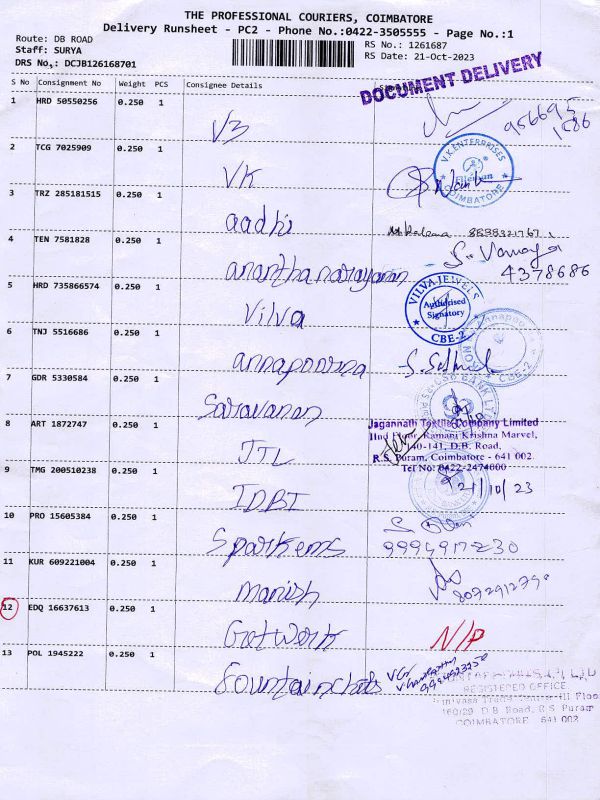 THE PROFESSIONAL COURIERS, COIMBATORE
Delivery Runsheet - PC2 - Phone No.:0422-3505555 - Page No.:1
Route: DB ROAD
Staff: SURYA
DRS No,: DCJB126168701
RS No.: 1261687
RS Date: 21-Oct-2023
DOCUMENT DELIVERY
S No Consignment No Weight PCS Consignee Details
1 HRD 50550256 0.250 1 V3 956695
1586
2 TCG 7025909 0.250 1 VK V.K ENTERPRISES COIMBATORE
3 TRZ 285181515 0.250 1 aadhi
4 TEN 7581828 0.250 1 anantha narayanan 4378686
5 HRD 735866574 0.250 1 Vilva VILVA JEWELS Authorised Signatory CBE-2
6 TNJ 5516686 0.250 1 annapoorna CBE-2
7 GDR 5330584 0.250 1 Saravanan
8 ART 1872747 0.250 1 JTL
Jagannath Textile Company Limited
IInd Floor, Ramani Krishna Marvel,
140-141, D.B. Road,
R.S. Puram, Coimbatore - 641 002.
Tel No: 0422-2474000
9 TMG 200510238 0.250 1 IDBI 21/10/23
10 PRO 15605384 0.250 1 Sparkems
11 KUR 609221004 0.250 1 manish
12 EDQ 16637613 0.250 1 Getwork N/P
13 POL 1945222 0.250 1 fountainchels
REGISTERED OFFICE
D.B. Road, R.S Puram
COIMBATORE 641 002